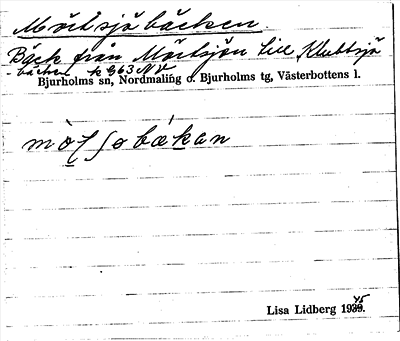 Mörtsjöbäcken
Bäck från Mörtsjön till Kluttsjö
-bäcken k 963 NV
Bjurholms sn, Nordmalings o. Bjurholms tg, Västerbottens l.
Lisa Lidberg 1945.